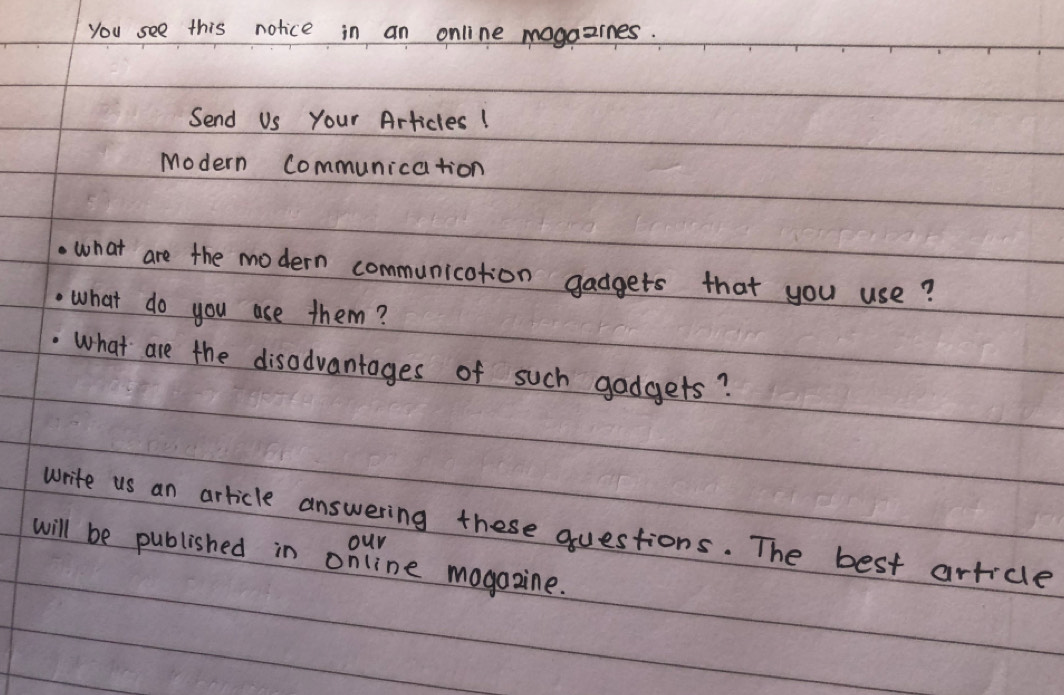 You see this notice in an online magazines.
Send Us Your Articles!
Modern Communication
• What are the modern communication gadgets that you use?
• What do you use them?
• What are the disadvantages of such gadgets?
Write us an article answering these questions. The best article
will be published in our online magazine.